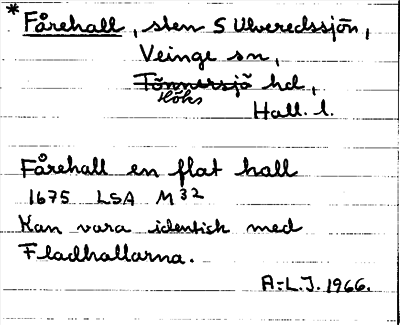 * Fårehall, sten S Ulveredssjön,
Veinge sn,
Tönnersjö hd,
Höks
Hall. l.
Fårehall en flat hall
1675 LSA M 32
Kan vara identisk med
Fladhallarna.
A-L.J. 1966.